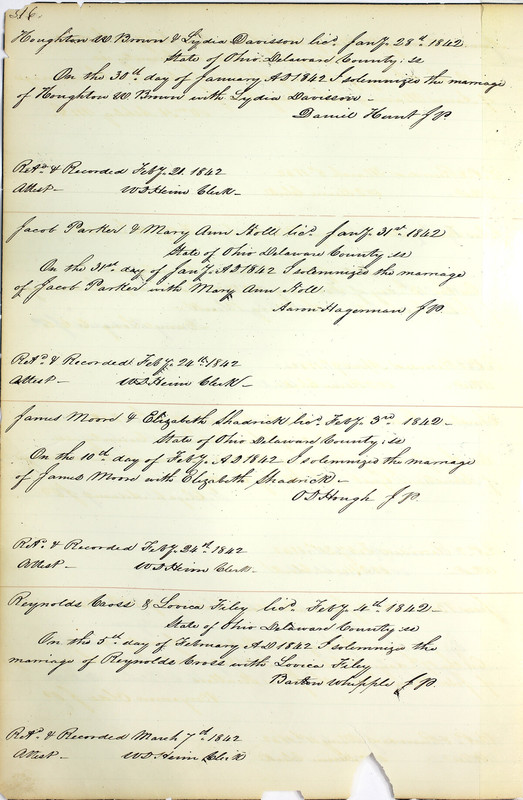 316.
Houghton W. Brown & Lydia Davisson lic.d Jany. 28th 1842
State of Ohio Delaware County: ss
On the 30th day of January A.D 1842 I solemnized the marriage
of Houghton W. Brown with Lydia Davisson –
Daniel Hunt J P.
Retd. & Recorded Feby. 21. 1842
Attest – W D Heim Clerk –
Jacob Parker & Mary Ann Noll lic.d Jany. 31st. 1842
State of Ohio Delaware County ss
On the 31st day of Jany. A D 1842 I solemnized the marriage
of Jacob Parker with Mary Ann Noll
Aaron Hagerman J P.
Retd. & Recorded Feby. 24th 1842
Attest – W D Heim Clerk –
James Moore & Elizabeth Shadrick lic.d Feby. 3rd. 1842 –
State of Ohio Delaware County: ss
On the 10th day of Feby. A D 1842 I solemnized the marriage
of James Moore with Elizabeth Shadrick –
O D Hough J P.
Retd. & Recorded Feby. 24th. 1842
Attest – W D Heim Clerk –
Reynolds Cross & Lovica Filey lic.d Feby. 4th 1842 –
State of Ohio Delaware County: ss
On the 5th day of February A D 1842 I solemnized the
marriage of Reynolds Cross with Lovica Filey
Barton Whipple J P.
Retd. & Recorded March 7th 1842
Attest – W D. Heim Clerk